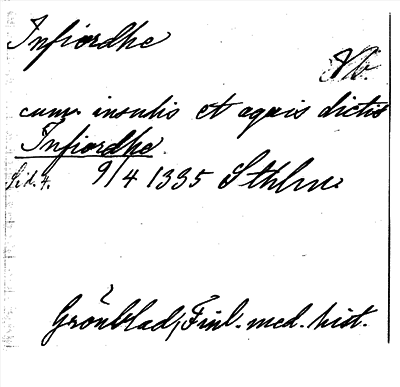 Infiordhe
Nb.
cum insulis et aquis dictis
Infiordhe.
Sid. 7. 9/4 1335 Sthlm.
Grönblad, Finl. med. hist.